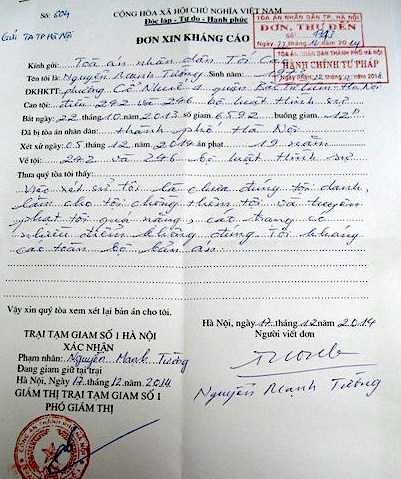 Số: 604
CỘNG HÒA XÃ HỘI CHỦ NGHĨA VIỆT NAM
Độc lập - Tự do - Hạnh phúc
Gửi TATPHS HN
TÒA ÁN NHÂN DÂN TP. HÀ NỘI
ĐƠN, THƯ ĐẾN
Số:
Ngày 17 tháng 12 năm 2014
ĐƠN XIN KHÁNG CÁO
TÒA ÁN NHÂN DÂN THÀNH PHỐ HÀ NỘI
HÀNH CHÍNH TƯ PHÁP
Kính gửi: Toà án nhân dân Tối Cao
Tên tôi là: Nguyễn Mạnh Tường Sinh năm
ĐKHKTT: phường Cổ Nhuế 1 quận Bắc Từ Liêm Hà Nội
Can tội: điều 242 và 246 bộ luật hình sự
Bắt ngày 22 tháng 10 năm 2013 số giam 6592 buồng giam
Đã bị tòa án nhân dân: thành phố Hà Nội
Xét xử ngày 05 tháng 12 năm 2014 án phạt 19 năm
Về tội: 242 và 246 bộ luật hình sự
Thưa quý tòa tôi thấy
Việc xét sử tôi là chưa đúng tội danh,
làm cho tôi chồng thêm tội và truyên
phạt tôi quá nặng, cáo trạng có
nhiều điểm không đúng. Tôi kháng
cáo toàn bộ bản án.
Vậy xin quý tòa xem xét lại bản án cho tôi.
TRẠI TẠM GIAM SỐ 1 HÀ NỘI
XÁC NHẬN
Phạm nhân: Nguyễn Mạnh Tường
Đang giam giữ tại trại
Hà Nội, Ngày 17 tháng 12 năm 2014
GIÁM THỊ TRẠI TẠM GIAM SỐ 1
PHÓ GIÁM THỊ
Hà Nội, ngày 17 tháng 12 năm 2014
Người viết đơn
Nguyễn Mạnh Tường